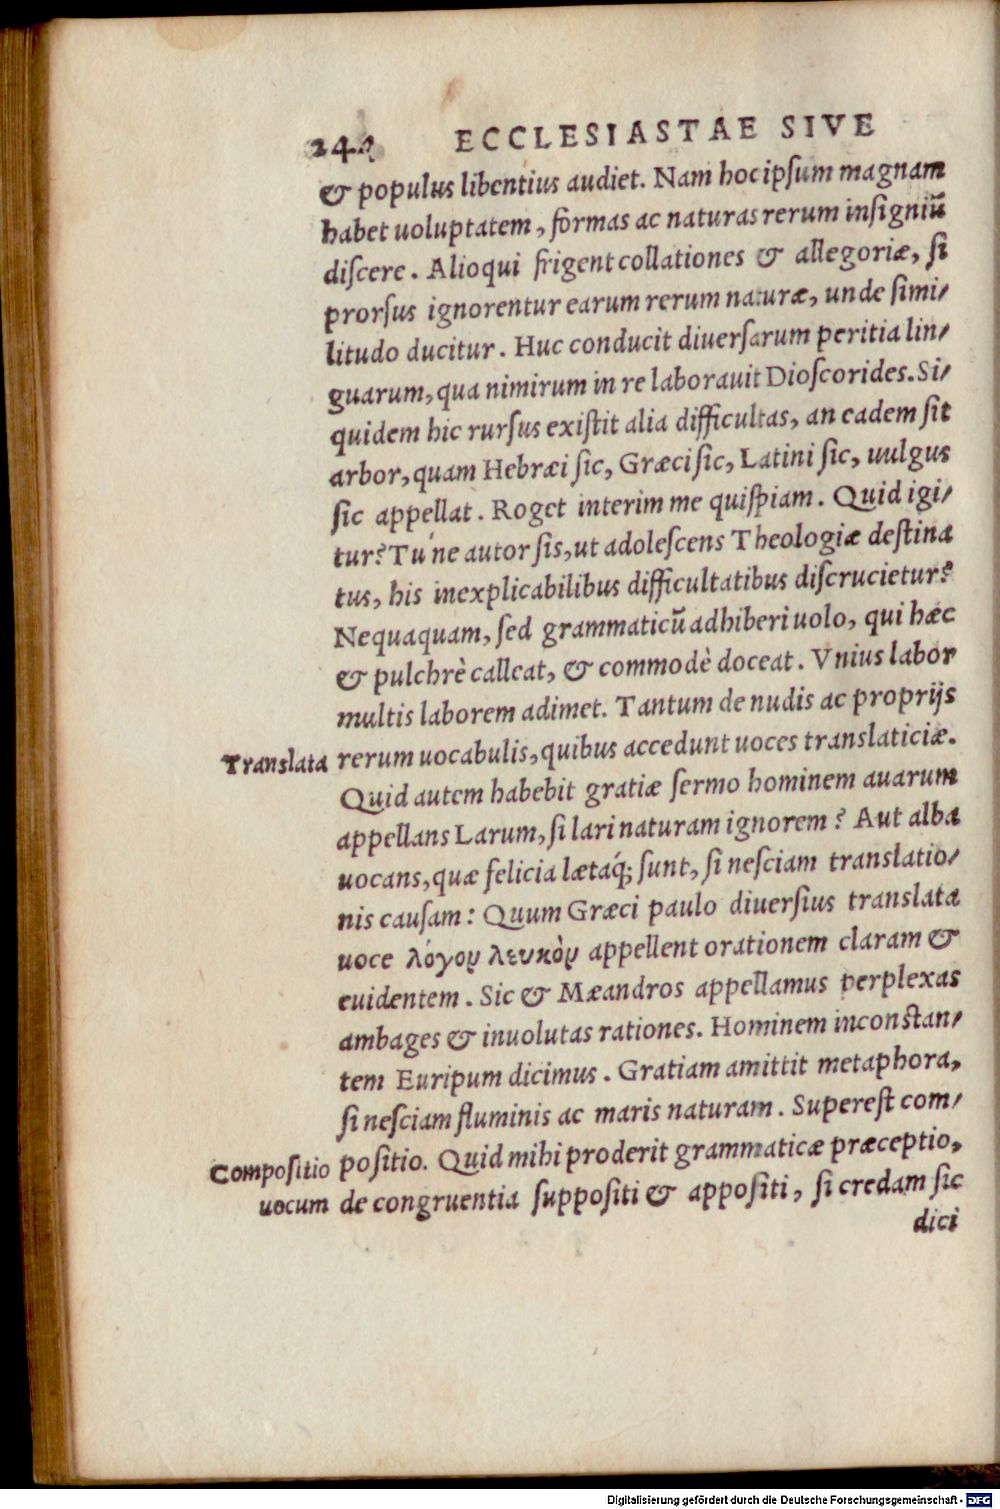 244 ECCLESIASTAE SIVE
& populus libentius audiet. Nam hoc ipſum magnam
habet uoluptatem, formas ac naturas rerum inſigniũ
diſcere. Alioqui frigent collationes & allegoriæ, ſi
prorſus ignorentur earum rerum naturæ, unde ſimi/
litudo ducitur. Huc conducit diuerſarum peritia lin/
guarum, qua nimirum in re laborauit Dioſcorides. Si/
quidem hic rurſus exiſtit alia difficultas, an eadem ſit
arbor, quam Hebræi ſic, Græci ſic, Latini ſic, uulgus
ſic appellat. Roget interim me quiſpiam. Quid igi/
tur? Tu'ne autor ſis, ut adoleſcens Theologiæ deſtina
tus, his inexplicabilibus difficultatibus diſcrucietur?
Nequaquam, ſed grammaticũ adhiberi uolo, qui hæc
& pulchrè calleat, & commodè doceat. Vnius labor
multis laborem adimet. Tantum de nudis ac proprijs
Translata rerum uocabulis, quibus accedunt uoces translaticiæ.
Quid autem habebit gratiæ ſermo hominem auarum
appellans Larum, ſi lari naturam ignorem? Aut alba
uocans, quæ felicia lætaq́; ſunt, ſi neſciam translatio/
nis cauſam: Quum Græci paulo diuerſius translata
uoce λόγου λευκὸυ appellent orationem claram &
euidentem. Sic & Mæandros appellamus perplexas
ambages & inuolutas rationes. Hominem inconſtan/
tem Euripum dicimus. Gratiam amittit metaphora,
ſi neſciam fluminis ac maris naturam. Supereſt com/
Compoſitio poſitio. Quid mihi proderit grammaticæ præceptio,
uocum de congruentia ſuppoſiti & appoſiti, ſi credam ſic
dici
Digitalisierung gefördert durch die Deutsche Forschungsgemeinschaft - DFG